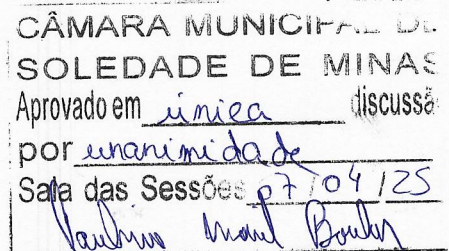 CÂMARA MUNICIPAL DE
SOLEDADE DE MINAS
Aprovado em única discussã
por unanimidade
Sala das Sessões 07/04/25